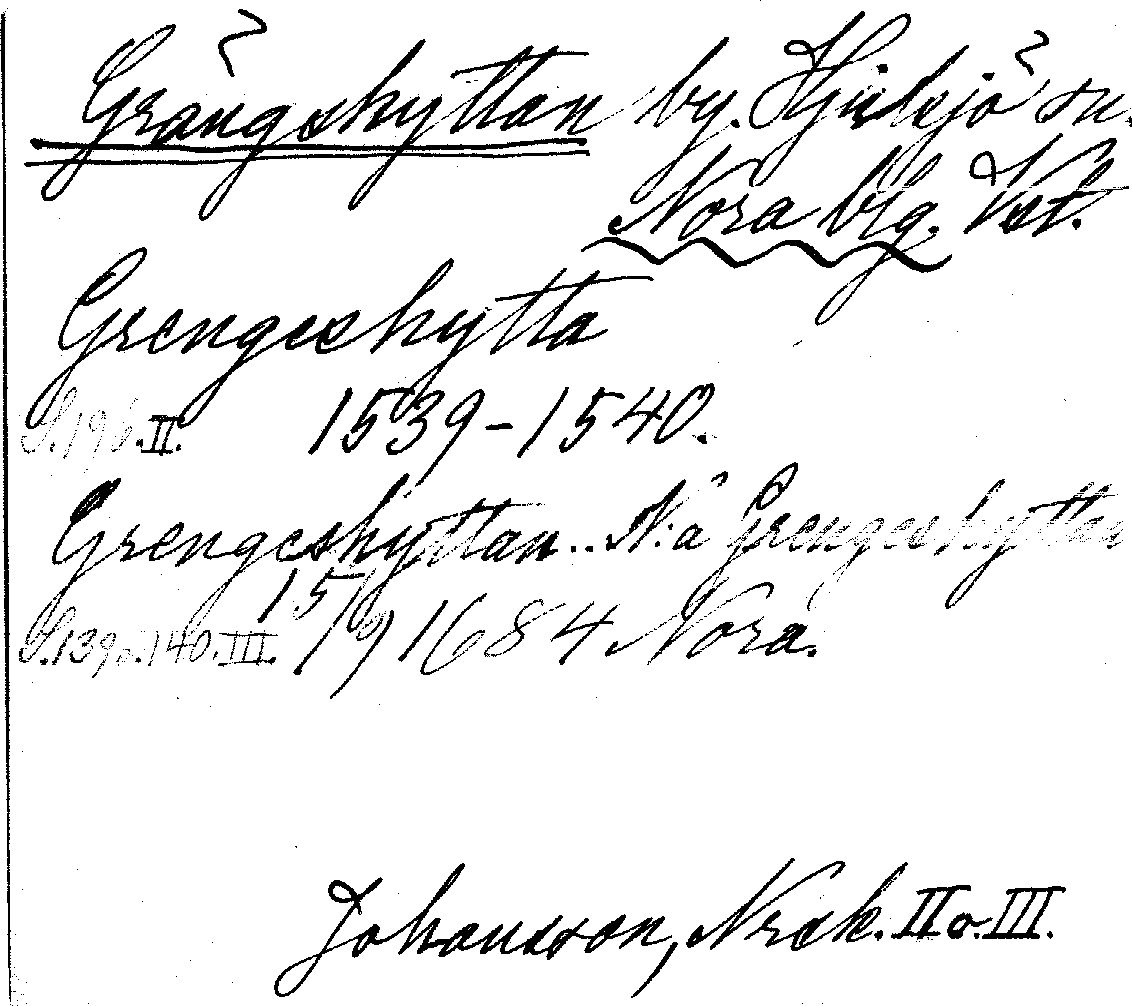 Grängshyttan by. Hjulsjö sn.
Nora blg. Vst.
Grengeshytta
S.196.II. 1539-1540.
Grengeshyttan.. N:a Grengeshyttan
S.139o.140.III. 15/9 1684 Nora.
Johansson, Nrsk. II o. III.